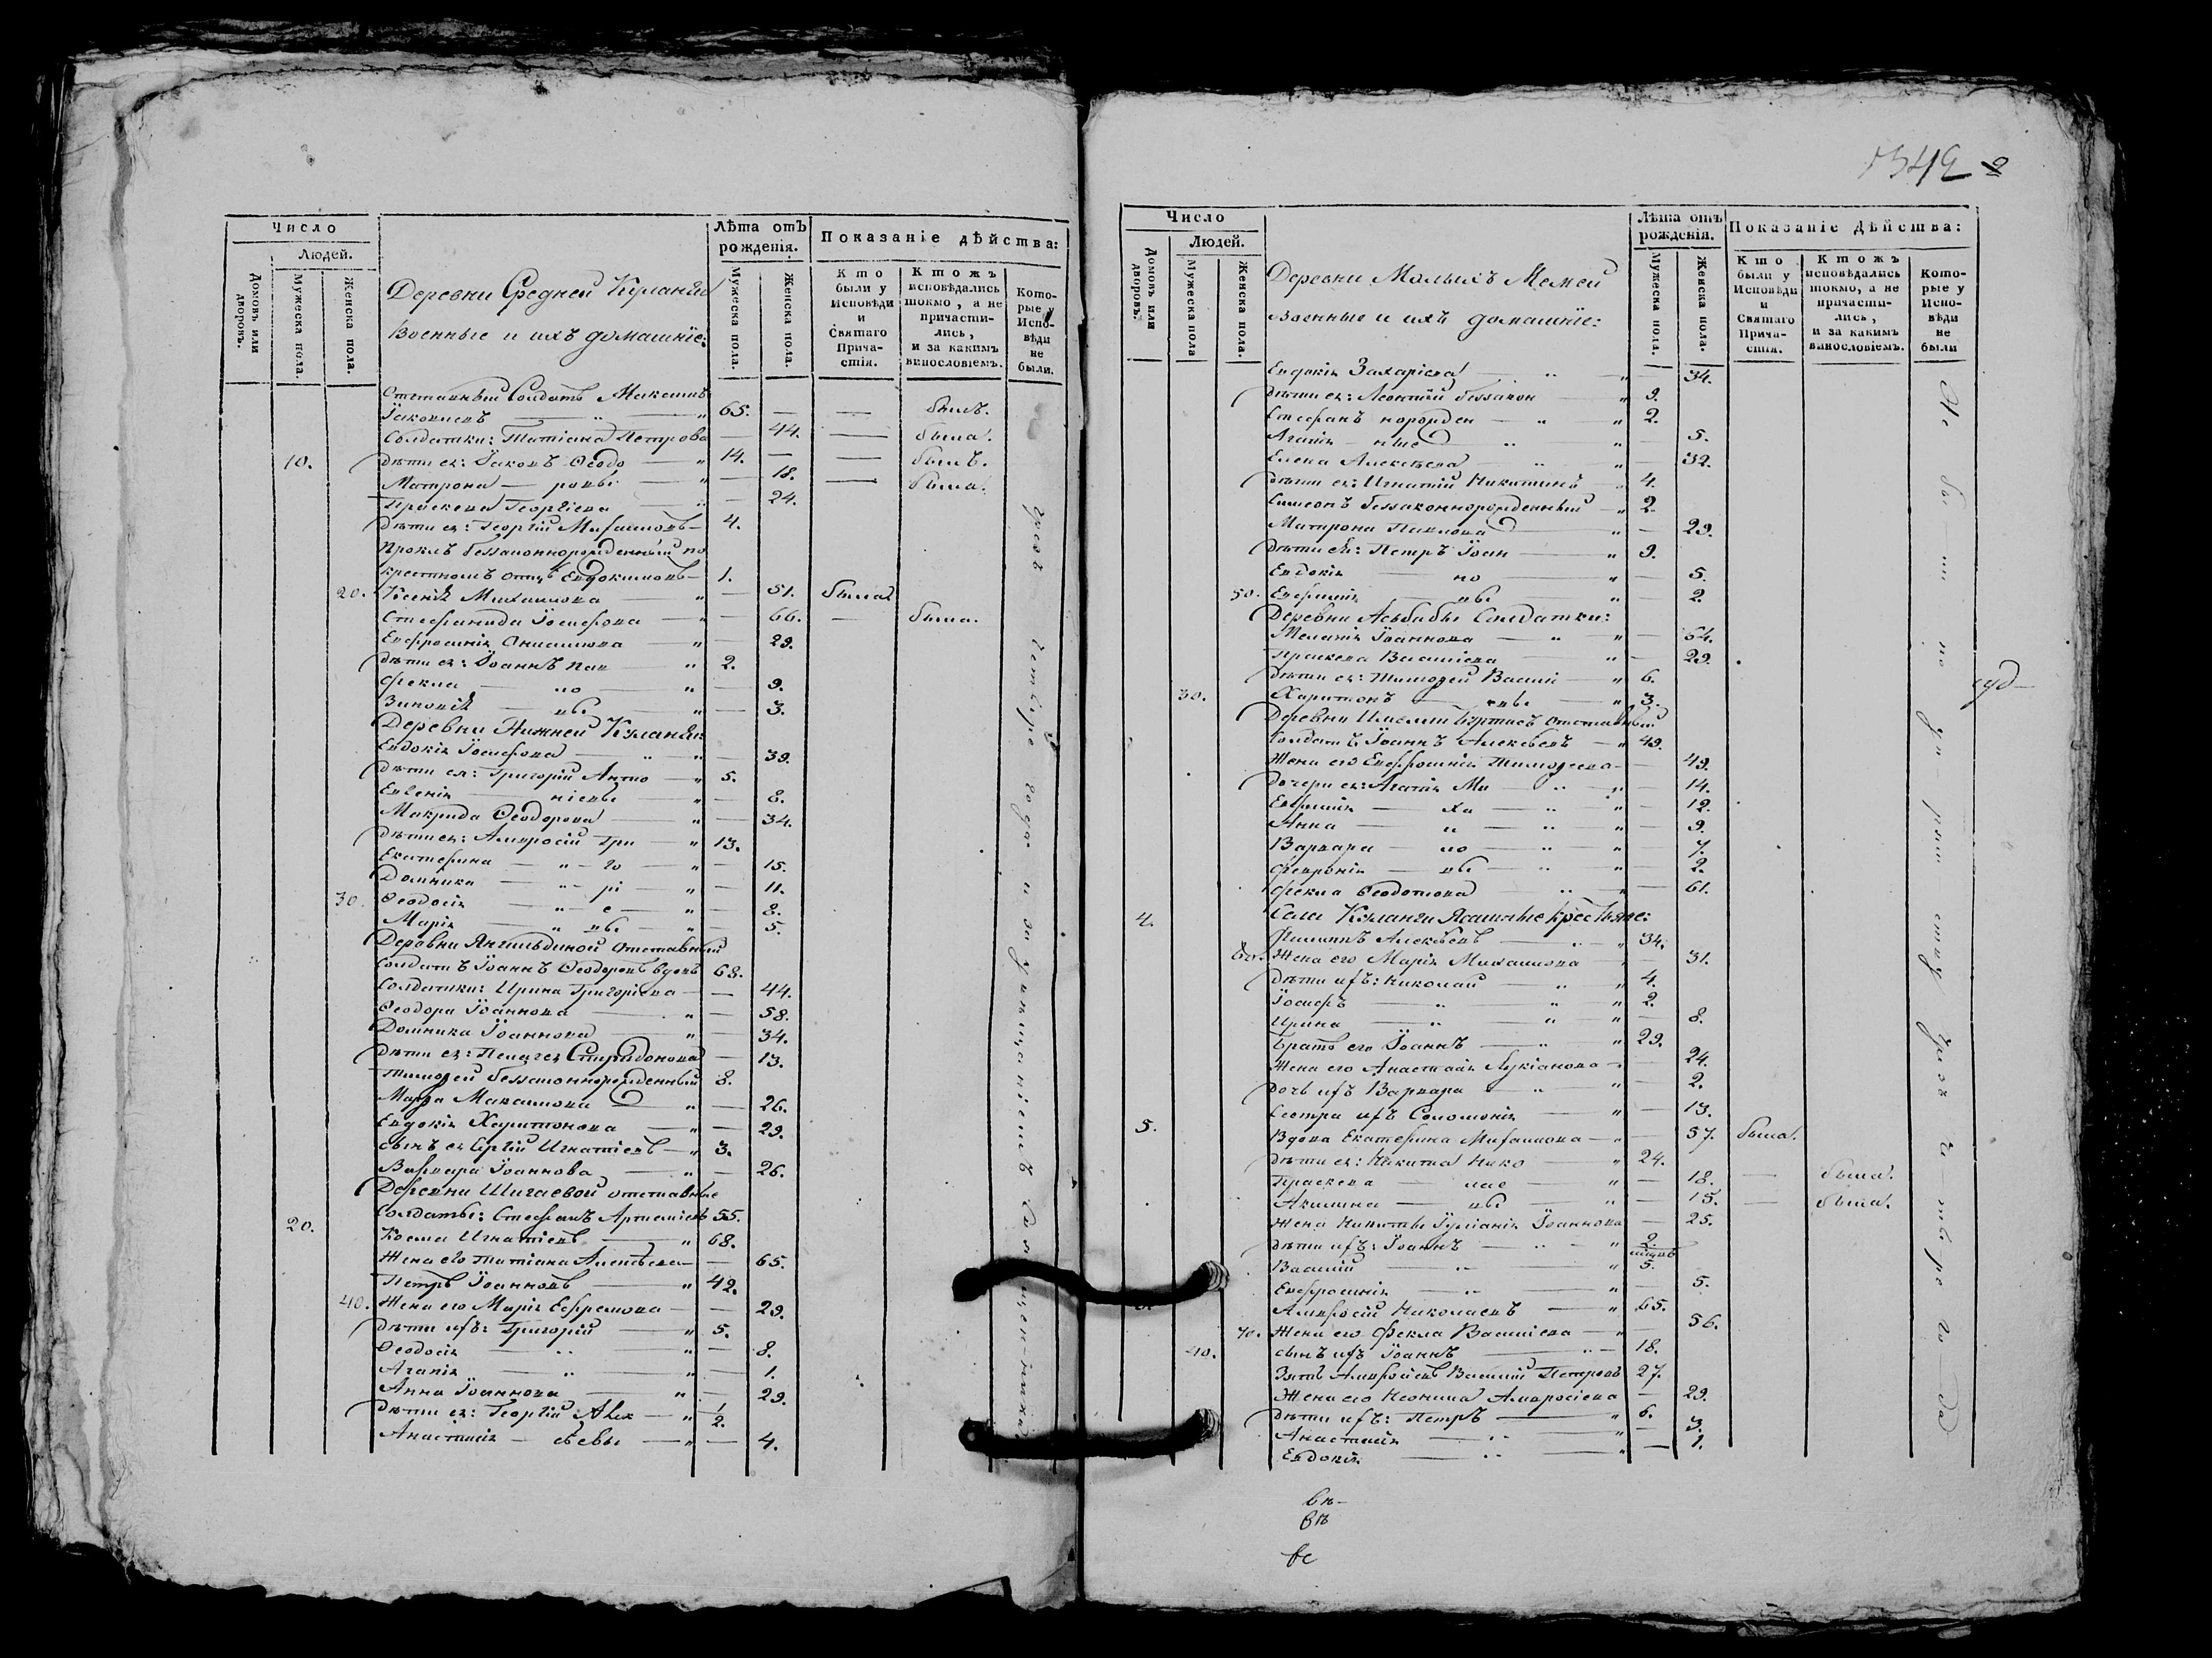 Число
Людей.
Домовъ или дворовъ.
Мужеска пола.
Женска пола.
Деревни Средней Куланги
Военные и ихъ домашнїе:
Лѣта отъ рожденія.
Мужеска пола.
Женска пола.
Показаніе дѣйства:
Кто были у Исповѣди и Святаго Прича-стія.
Ктожъ исповѣдались токмо, а не причасти-лись, и за какимъ винословіемъ.
Кото-рые у Испо-вѣди не были.
Отставный Солдатъ Максимъ
Іаковлевъ 65. — — былъ.
Солдатки: Татіана Петрова — 44. — была.
10. дѣти ея: Іаковъ Ѳеодо — 14. — — былъ.
Матрона — ровы — 18. — была.
Праскева Георгіева — 24.
Дѣти ея: Георгій Михаиловъ — 4.
Проклъ беззаконнорожденный по
крестномъ отцѣ Евдокимовъ — 1.
20. Ксенія Михаилова — 51. была
Стефанида Іосифова — 66. — была.
Евфросинія Онисимова — 29.
дѣти ея: Іоаннъ Пав — 2.
Фекла — ло — 9.
Зиновія — вы — 3.
Деревни Нижней Куланги:
Евдокія Іосифова — 39.
дѣти ея: Григорій Анто — 5.
Евгенія — ніевы — 8.
Макрида Ѳеодорова — 34.
дѣти ея: Амвросій Гри — 13.
Екатерина — го — 15.
Домника — рі — 11.
30. Ѳеодосія — е — 8.
Марія — вы — 5.
Деревни Янгильдиной отставный
Солдатъ Іоаннъ Ѳеодоровъ вдовъ 68.
Солдатки: Ирина Григоріева — 44.
Ѳеодора Іоаннова — 58.
Домника Іоаннова — 34.
дѣти ея: Пелагея Спиридонова — 13.
Тимоѳей беззаконнорожденный 8.
Марѳа Максимова — 26.
Евдокія Харитонова — 29.
сынъ ея Сергій Игнатіевъ — 3.
Варвара Іоаннова — 26.
Деревни Шигаевой отставные
Солдаты: Стефанъ Артеміевъ 55.
20. Козма Игнатіевъ — 68.
Жена его Татіана Алексѣева — 65.
Петръ Іоанновъ — 42.
40. Жена его Марія Ефремова — 29.
дѣти ихъ: Григорій — 5.
Ѳеодосія — 8.
Агапія — 1.
Анна Іоаннова — 29.
дѣти ея: Георгій Алек — 1/2.
Анастасія — сѣевы — 4.
Число
Людей.
Домовъ или дворовъ.
Мужеска пола
Женска пола.
Деревни Малыхъ Мемей
военные и ихъ домашнїе:
Лѣта отъ рожденія.
Мужеска пола.
Женска пола.
Показаніе Дѣйства:
Кто были у Исповѣди и Святаго Прича-стія.
Ктожъ исповѣдались токмо, а не причасти-лись, и за какимъ винословіемъ.
Кото-рые у Испо-вѣди не были
Евдокія Захаріева — 34.
дѣти ея: Леонтій беззакон — 9.
Стефанъ норожден — 2.
Агапія — ные — 5.
Елена Алексѣева — 32.
дѣти ея: Игнатій Никитинъ — 4.
Симеонъ беззаконнорожденный — 2.
Матрона Павлова — 29.
дѣти ея: Петръ Іоан — 9.
Евдокія — но — 5.
50. Евфимія — вы — 2.
Деревни Асьбабы Солдатки:
Меланія Іоаннова — 64.
Праскева Василіева — 29.
дѣти ея: Тимоѳей Васили — 6.
30. Харитонъ — евы — 3.
Солдатъ Іоаннъ Алексѣевъ — 49.
Жена его Евфросинія Тимоѳеева — 49.
дочери ея: Агапія Ми — 14.
Евфимія — ха — 12.
Анна — и — 9.
Варвара — ло — 7.
Февронія — вы — 2.
Фекла Ѳеодотова — 61.
4. Села Куланги Ясашные крестьяне:
Филиппъ Алексѣевъ — 34.
60. Жена его Марія Михаилова — 31.
дѣти ихъ: Николай — 4.
Іосифъ — 2.
Ирина — 8.
Братъ его Іоаннъ — 29.
Жена его Анастасія Лукіанова — 24.
дочь ихъ Варвара — 2.
Сестра ихъ Соломонія — 13.
5. Вдова Екатерина Михаилова — 57. была.
дѣти ея: Никита Нико — 24.
Праскева — лае — 18. — была.
Акилина — вы — 15. — была.
Жена Никиты Іуліанія Іоаннова — 25.
дѣти ихъ: Іоаннъ — 2.
Василій — 5.
Евфросинія — 5.
Амвросій Николаевъ — 65.
70. Жена его Фекла Василіева — 56.
40. сынъ ихъ Іоаннъ — 18.
Зять Амвросіевъ Василій Петровъ 27.
Жена его Неонила Амвросіева — 29.
дѣти ихъ: Петръ — 6.
Анастасія — 3.
Евдокія — 1.